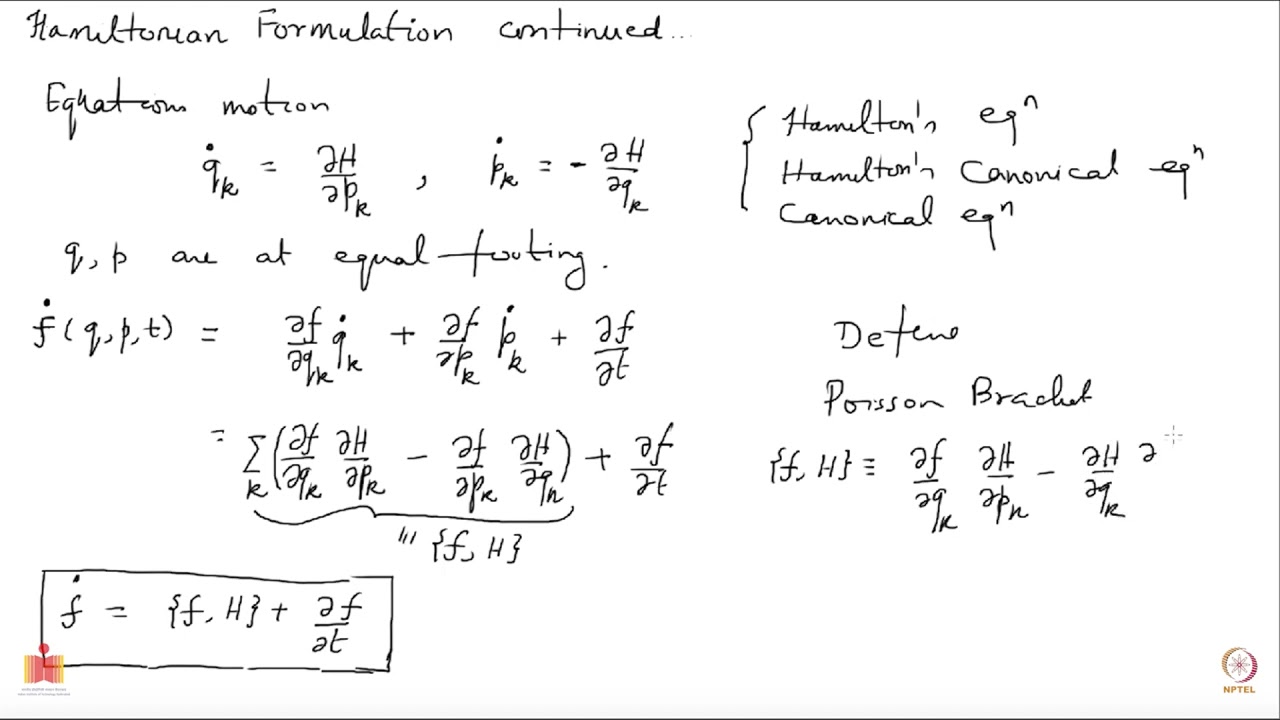 Hamiltonian Formulation continued...
Equations motion
q̇_k = ∂H/∂p_k , ṗ_k = - ∂H/∂q_k
{ Hamilton's eqⁿ
Hamilton's Canonical eqⁿ
Canonical eqⁿ
q, p are at equal footing.
ḟ(q, p, t) = ∂f/∂q_k q̇_k + ∂f/∂p_k ṗ_k + ∂f/∂t
= Σ_k (∂f/∂q_k ∂H/∂p_k - ∂f/∂p_k ∂H/∂q_k) + ∂f/∂t
≡ {f, H}
ḟ = {f, H} + ∂f/∂t
Define
Poisson Bracket
{f, H} ≡ ∂f/∂q_k ∂H/∂p_k - ∂H/∂q_k ∂
NPTEL